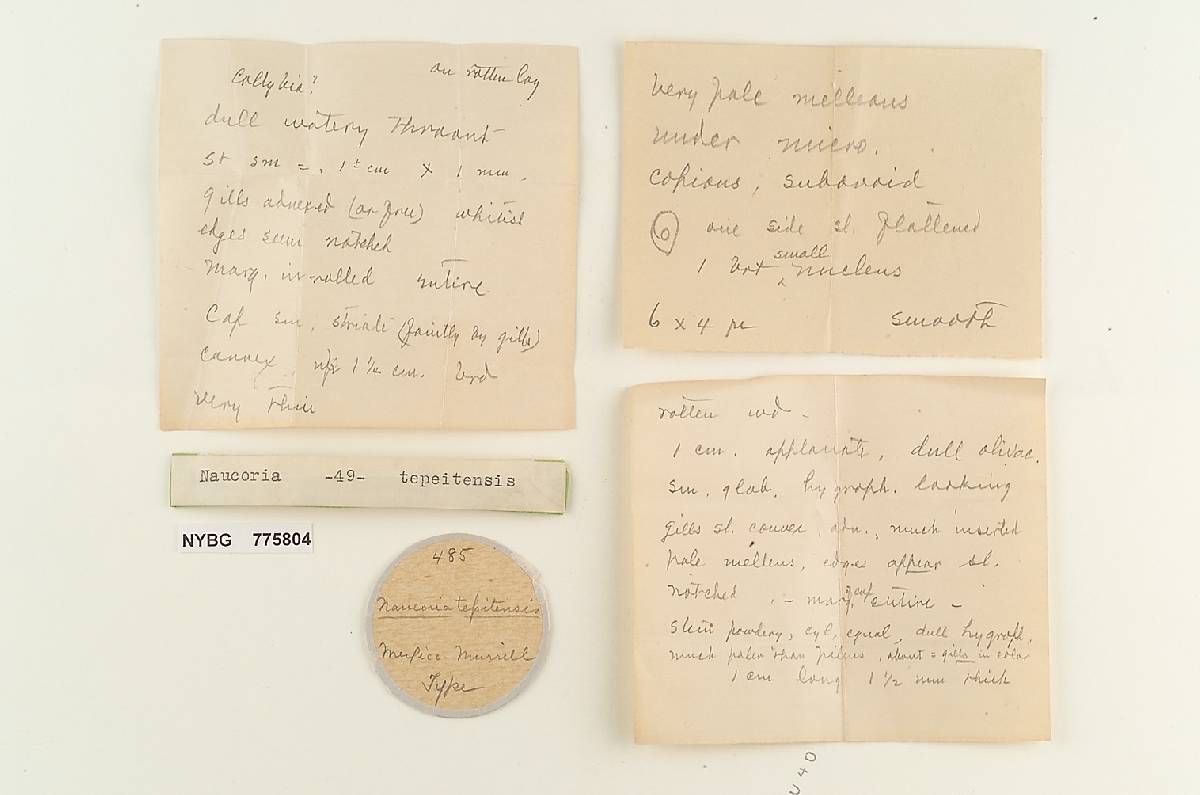 Collybia?
on rotten log
dull watery
St sm = . 1± cm x 1 mm.
gills adnexed (or free) whitish
edges seem notched
Marg. in-rolled entire
Cap sm, striate (faintly by gills)
convex, 1 1/2 cm. brd
very thin
Naucoria -49- tepeitensis
NYBG 775804
485
Naucoria tepitensis
Mexico Murrill
Type
Very pale melleous
under micro.
copious, subovoid
6 one side sl. flattened
1 small nucleus
6 x 4 µ smooth
rotten wd -
1 cm. applanate, dull olivac.
sm. glab. hygroph. looking
gills sl. convex, adn., much inserted
pale melleus, edges appear sl.
notched, - marg. cap entire -
Stem powdery, cyl, equal, dull hygroph,
much paler than pileus, about = gills in color
1 cm long 1 1/2 mm thick